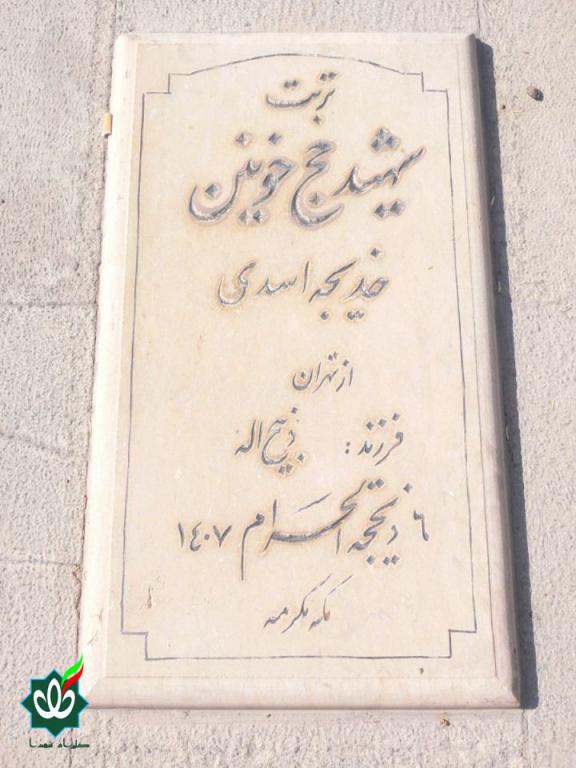 تربت
شهید حج خونین
خدیجه اسدی
از تهران
فرزند : ذبیح اله
٦ ذیحجه الحرام ١٤٠٧
مکه مکرمه
گلزار شهدا